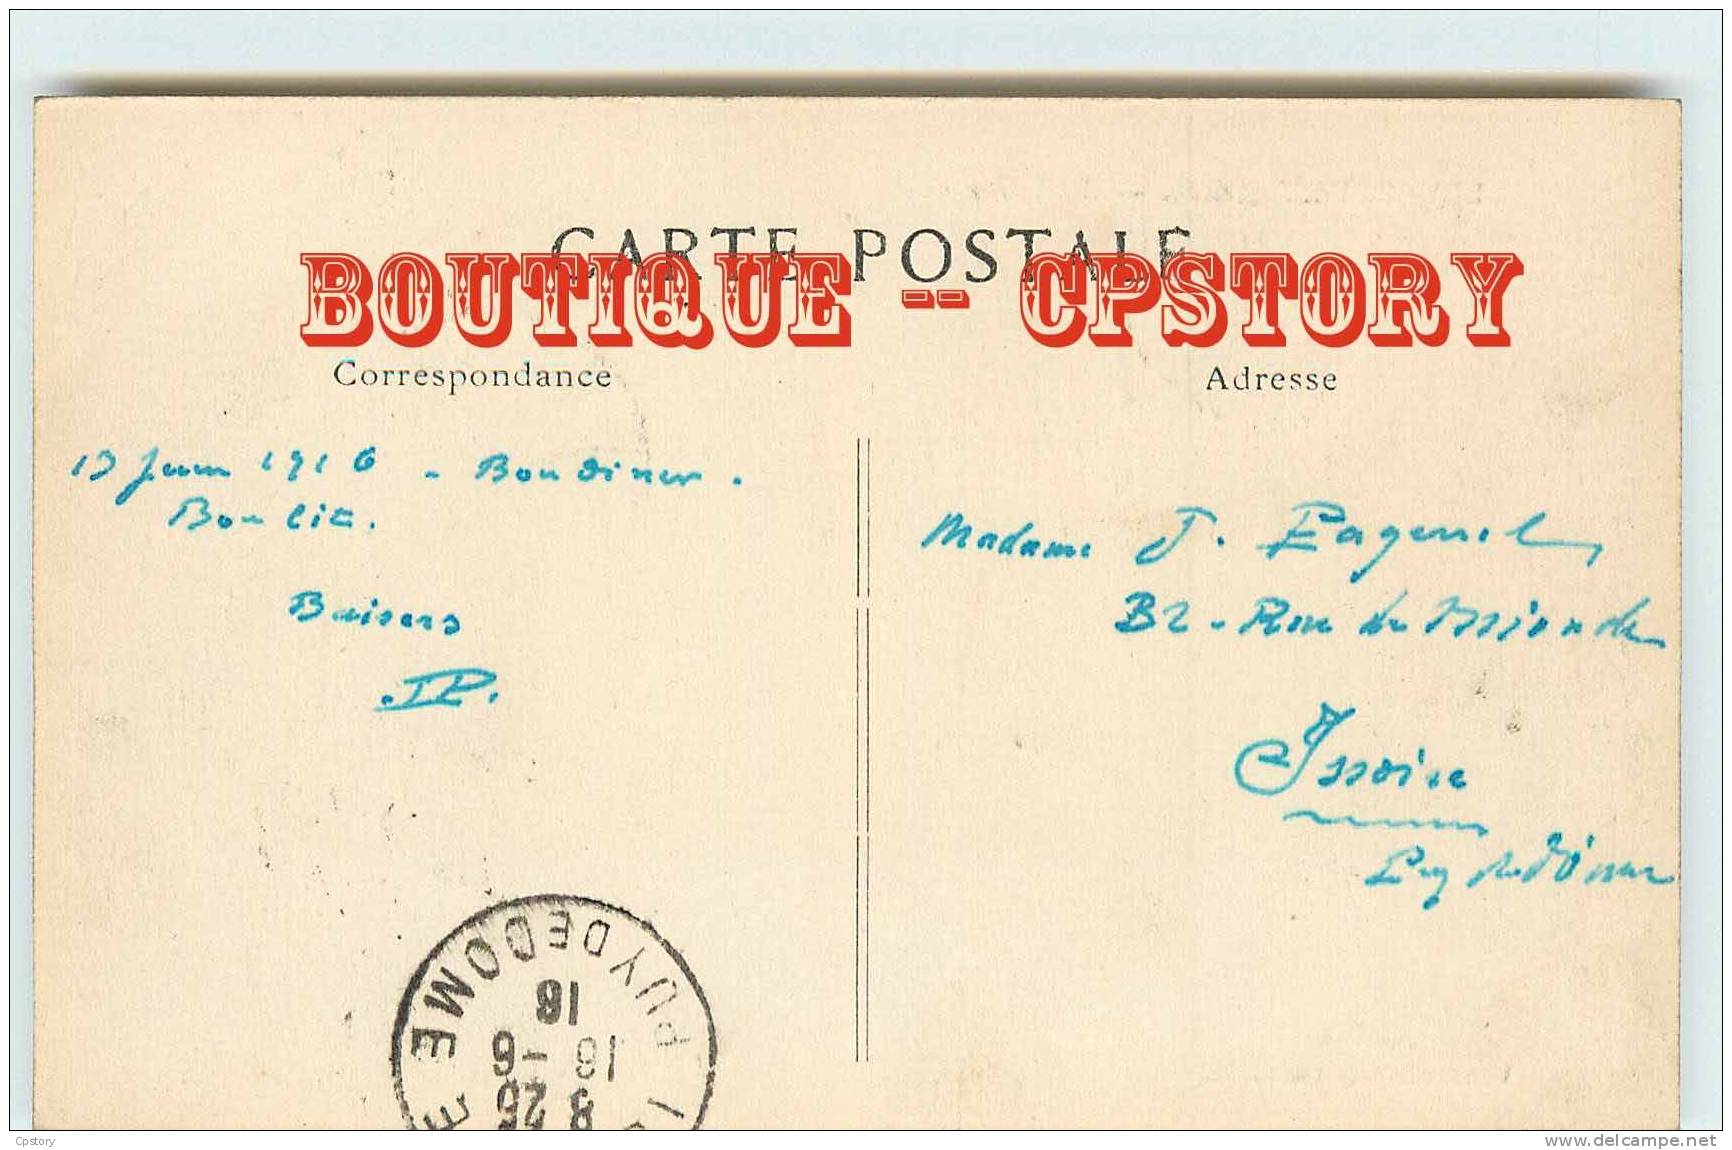 CARTE POSTALE
BOUTIQUE -- CPSTORY
Correspondance
Adresse
13 Juin 1916 - Bon diner.
Bon lit.
Baisers
JP.
Madame J.
32 - Rue de
Issoire
Puy de Dôme
PUY DE DOME
16
16 - 6
8 25
Cpstory
www.delcampe.net